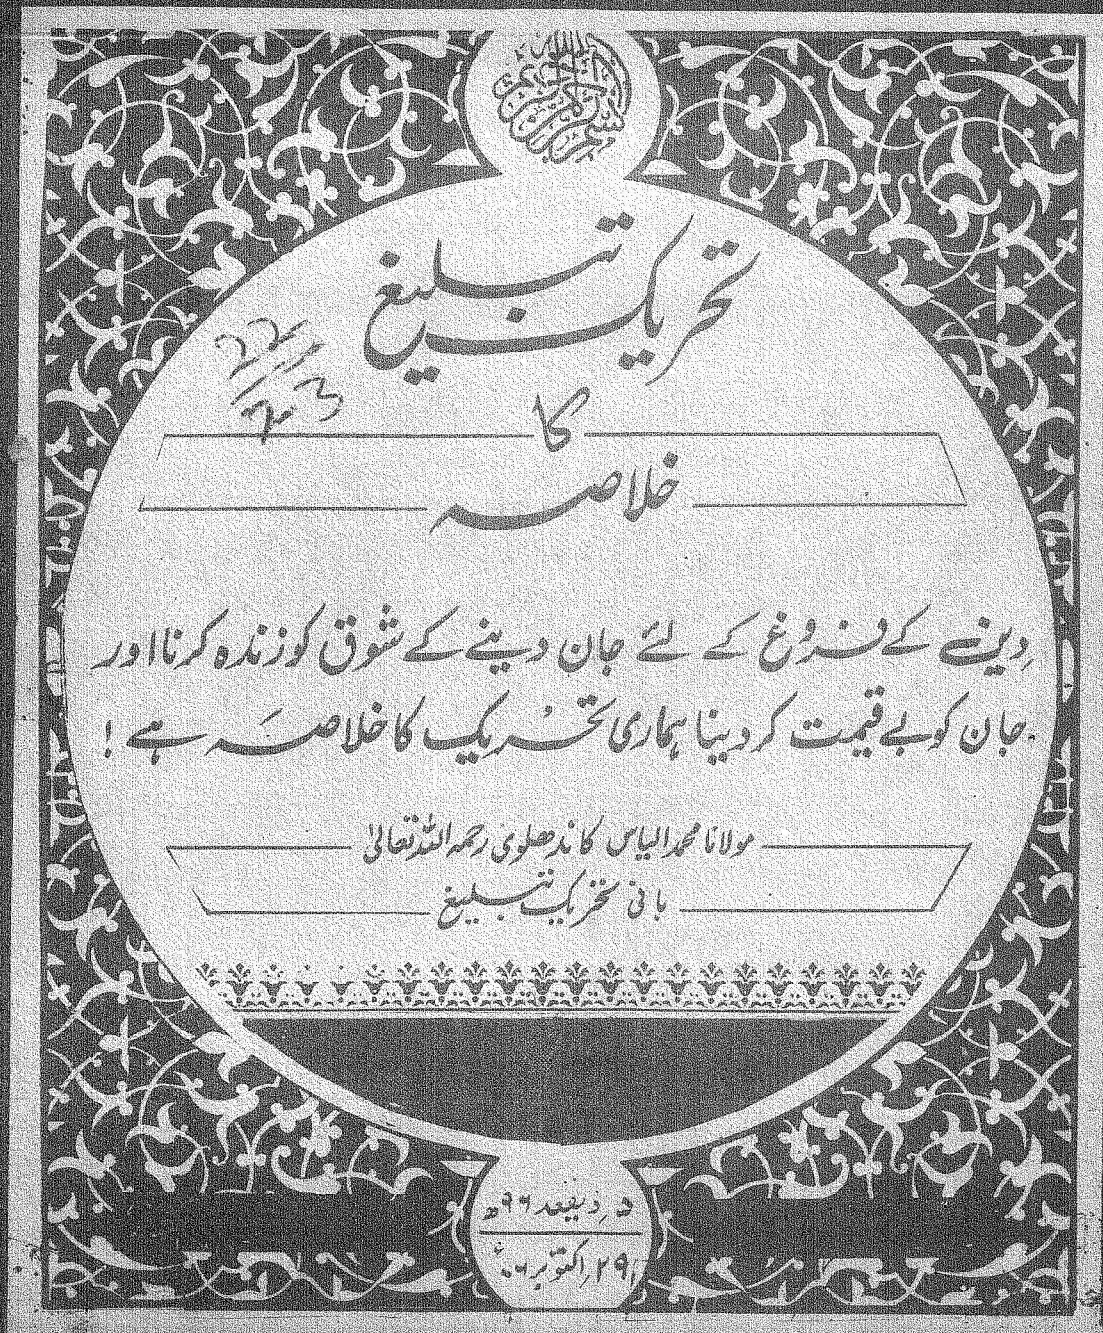 بسم الله الرحمن الرحيم
تحریک تبلیغ
کا
خلاصہ
دین کے فروغ کے لئے جان دینے کے شوق کو زندہ کرنا اور
جان کو بے قیمت کر دینا ہماری تحریک کا خلاصہ ہے !
مولانا محمد الیاس کاندھلوی رحمہ اللہ تعالیٰ
بانی تحریک تبلیغ